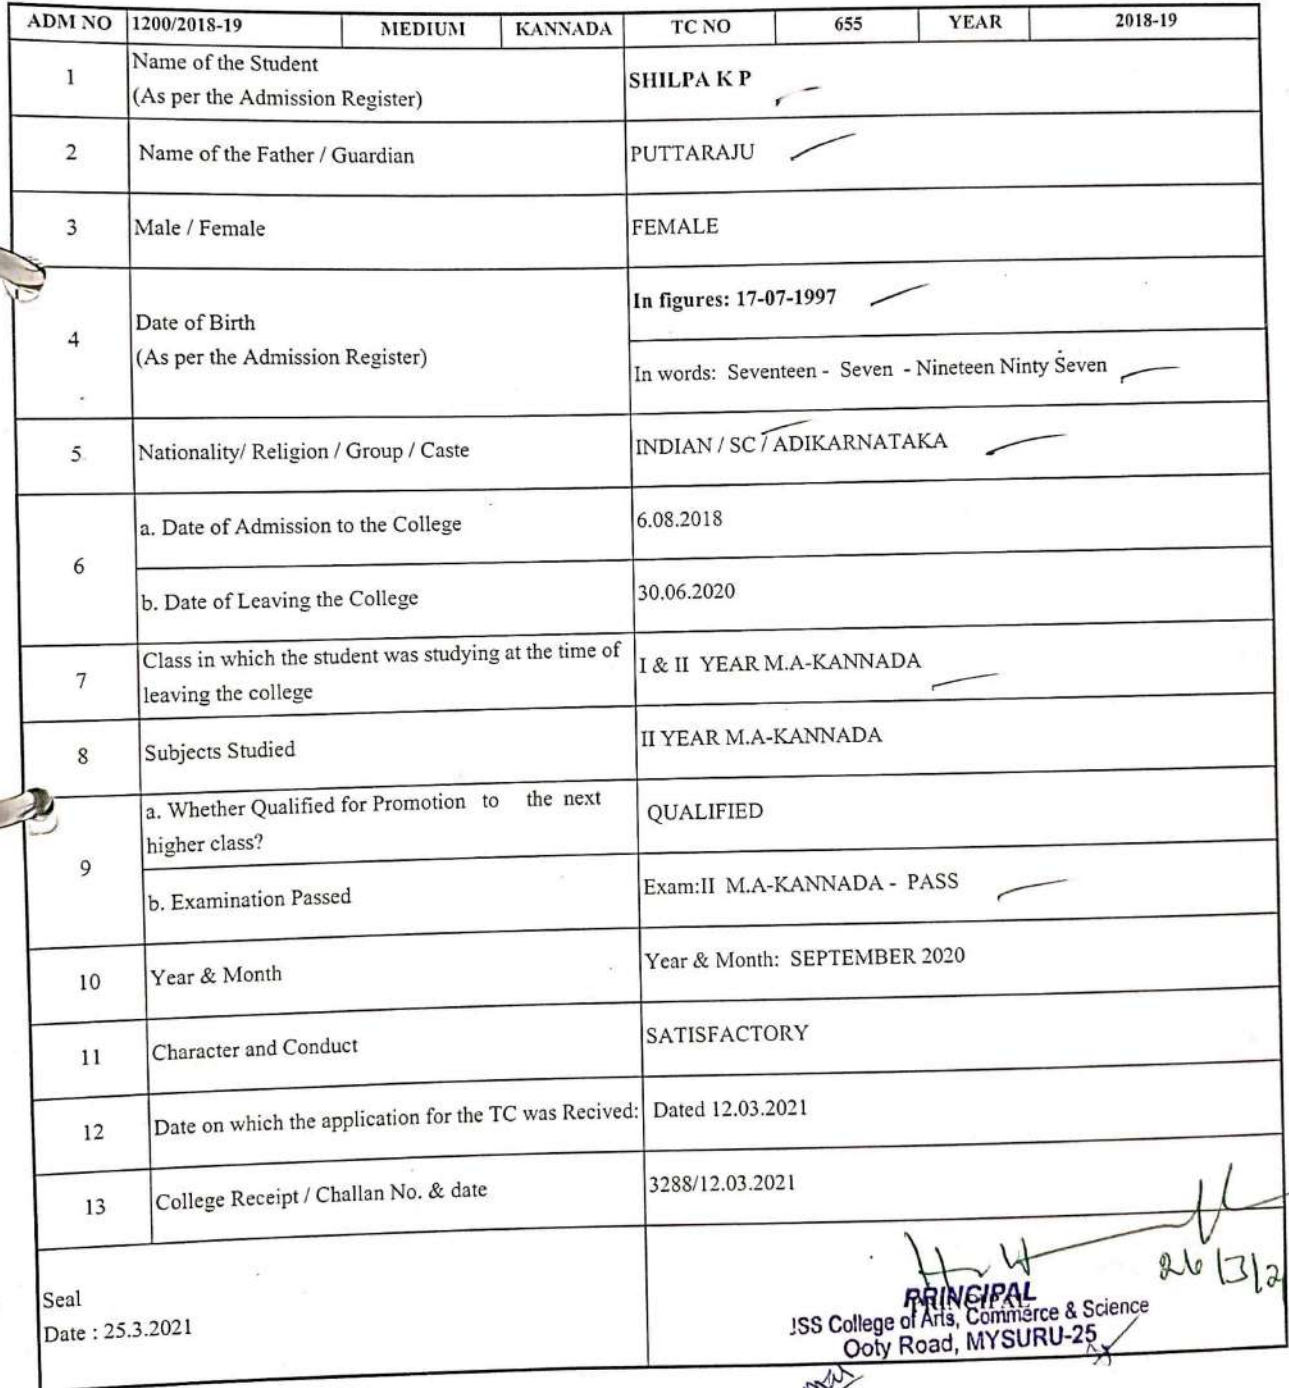 ADM NO 1200/2018-19 MEDIUM KANNADA TC NO 655 YEAR 2018-19
1 Name of the Student
(As per the Admission Register) SHILPA K P
2 Name of the Father / Guardian PUTTARAJU
3 Male / Female FEMALE
4 Date of Birth
(As per the Admission Register)
In figures: 17-07-1997
In words: Seventeen - Seven - Nineteen Ninty Seven
5 Nationality/ Religion / Group / Caste INDIAN / SC / ADIKARNATAKA
6 a. Date of Admission to the College 6.08.2018
b. Date of Leaving the College 30.06.2020
7 Class in which the student was studying at the time of
leaving the college I & II YEAR M.A-KANNADA
8 Subjects Studied II YEAR M.A-KANNADA
9 a. Whether Qualified for Promotion to the next
higher class? QUALIFIED
b. Examination Passed Exam:II M.A-KANNADA - PASS
10 Year & Month Year & Month: SEPTEMBER 2020
11 Character and Conduct SATISFACTORY
12 Date on which the application for the TC was Recived: Dated 12.03.2021
13 College Receipt / Challan No. & date 3288/12.03.2021
26/3/2
Seal
Date : 25.3.2021
PRINCIPAL
PRINCIPAL
JSS College of Arts, Commerce & Science
Ooty Road, MYSURU-25